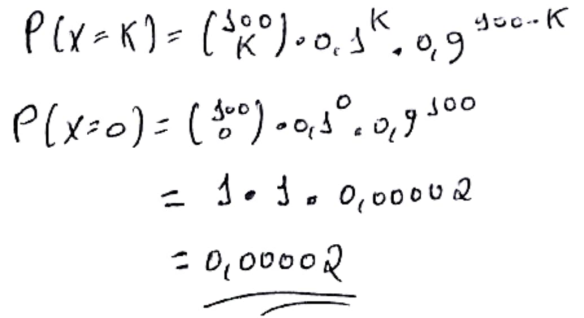 P(X=K) = (100 K) · 0,1^K · 0,9^100-K
P(X=0) = (100 0) · 0,1^0 · 0,9^100
= 1 · 1 · 0,00002
= 0,00002